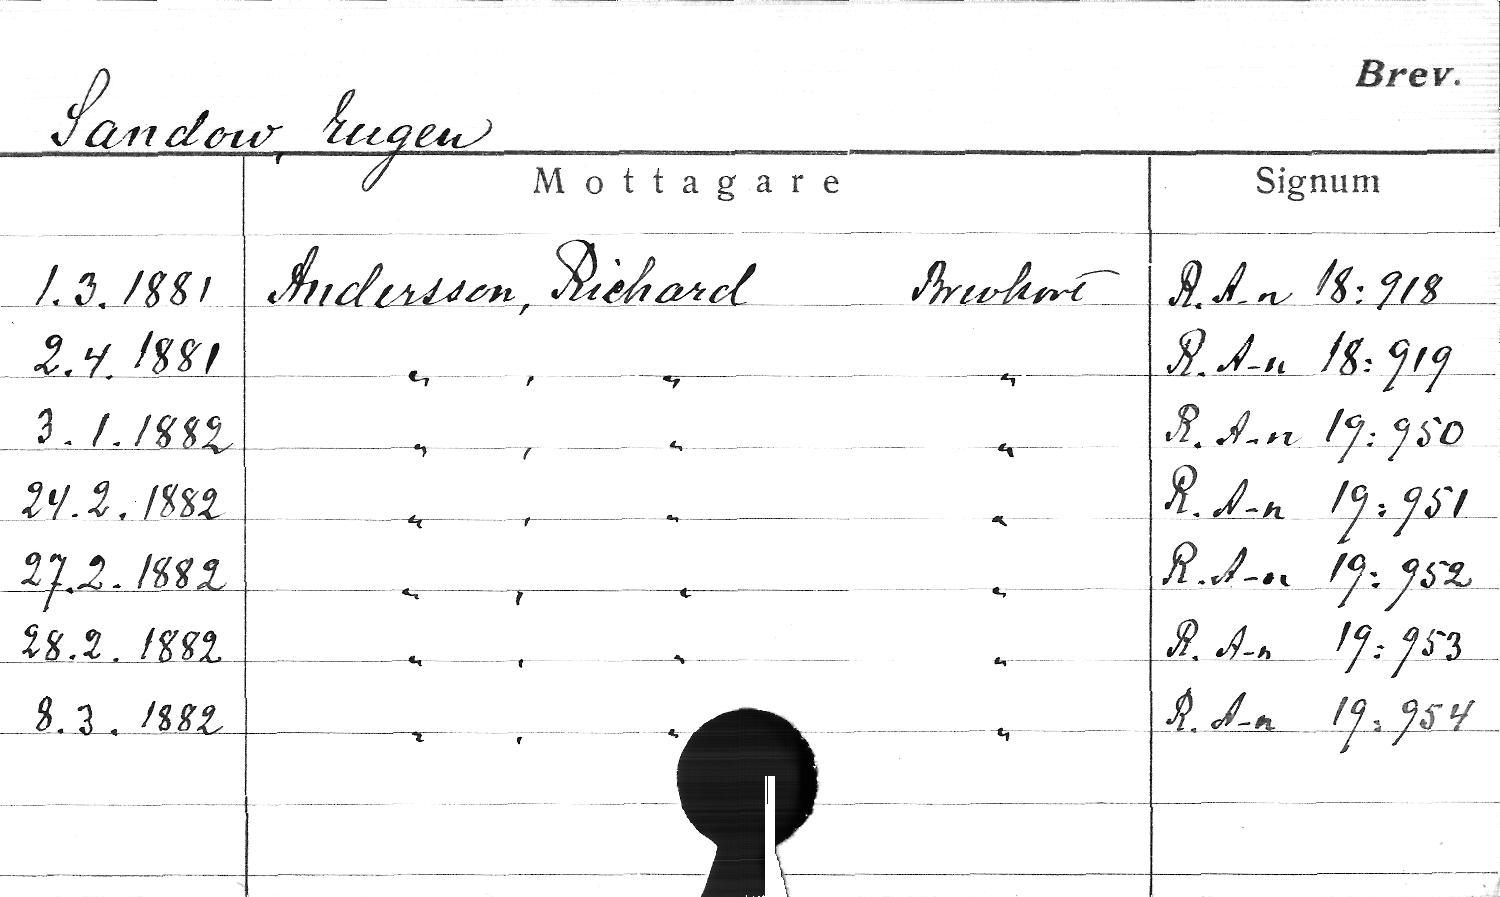 Brev.
Sandow, Eugen
Mottagare Signum
1.3.1881 Andersson, Richard Brevkort R. A-n 18:918
2.4.1881 " , " " R. A-n 18:919
3.1.1882 " , " " R. A-n 19:950
24.2.1882 " , " " R. A-n 19:951
27.2.1882 " , " " R. A-n 19:952
28.2.1882 " , " " R. A-n 19:953
8.3.1882 " , " " R. A-n 19:954